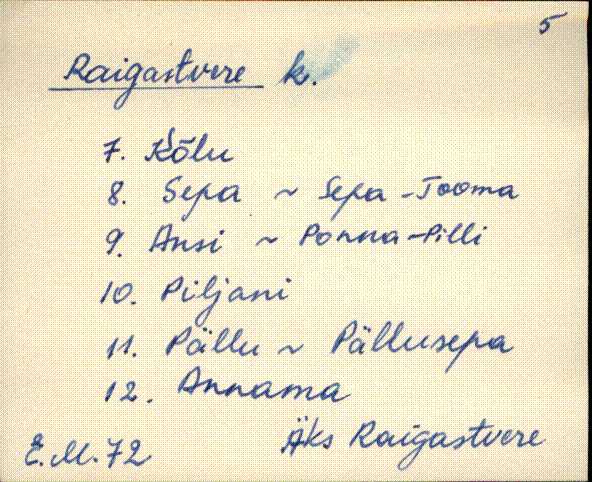 5
Raigastvere k.
7. Kõlu
8. Sepa ~ Sepa-Tooma
9. Ansi ~ Ponna-Pilli
10. Piljani
11. Pällu ~ Pällusepa
12. Annama
E.M.72 Äks Raigastvere